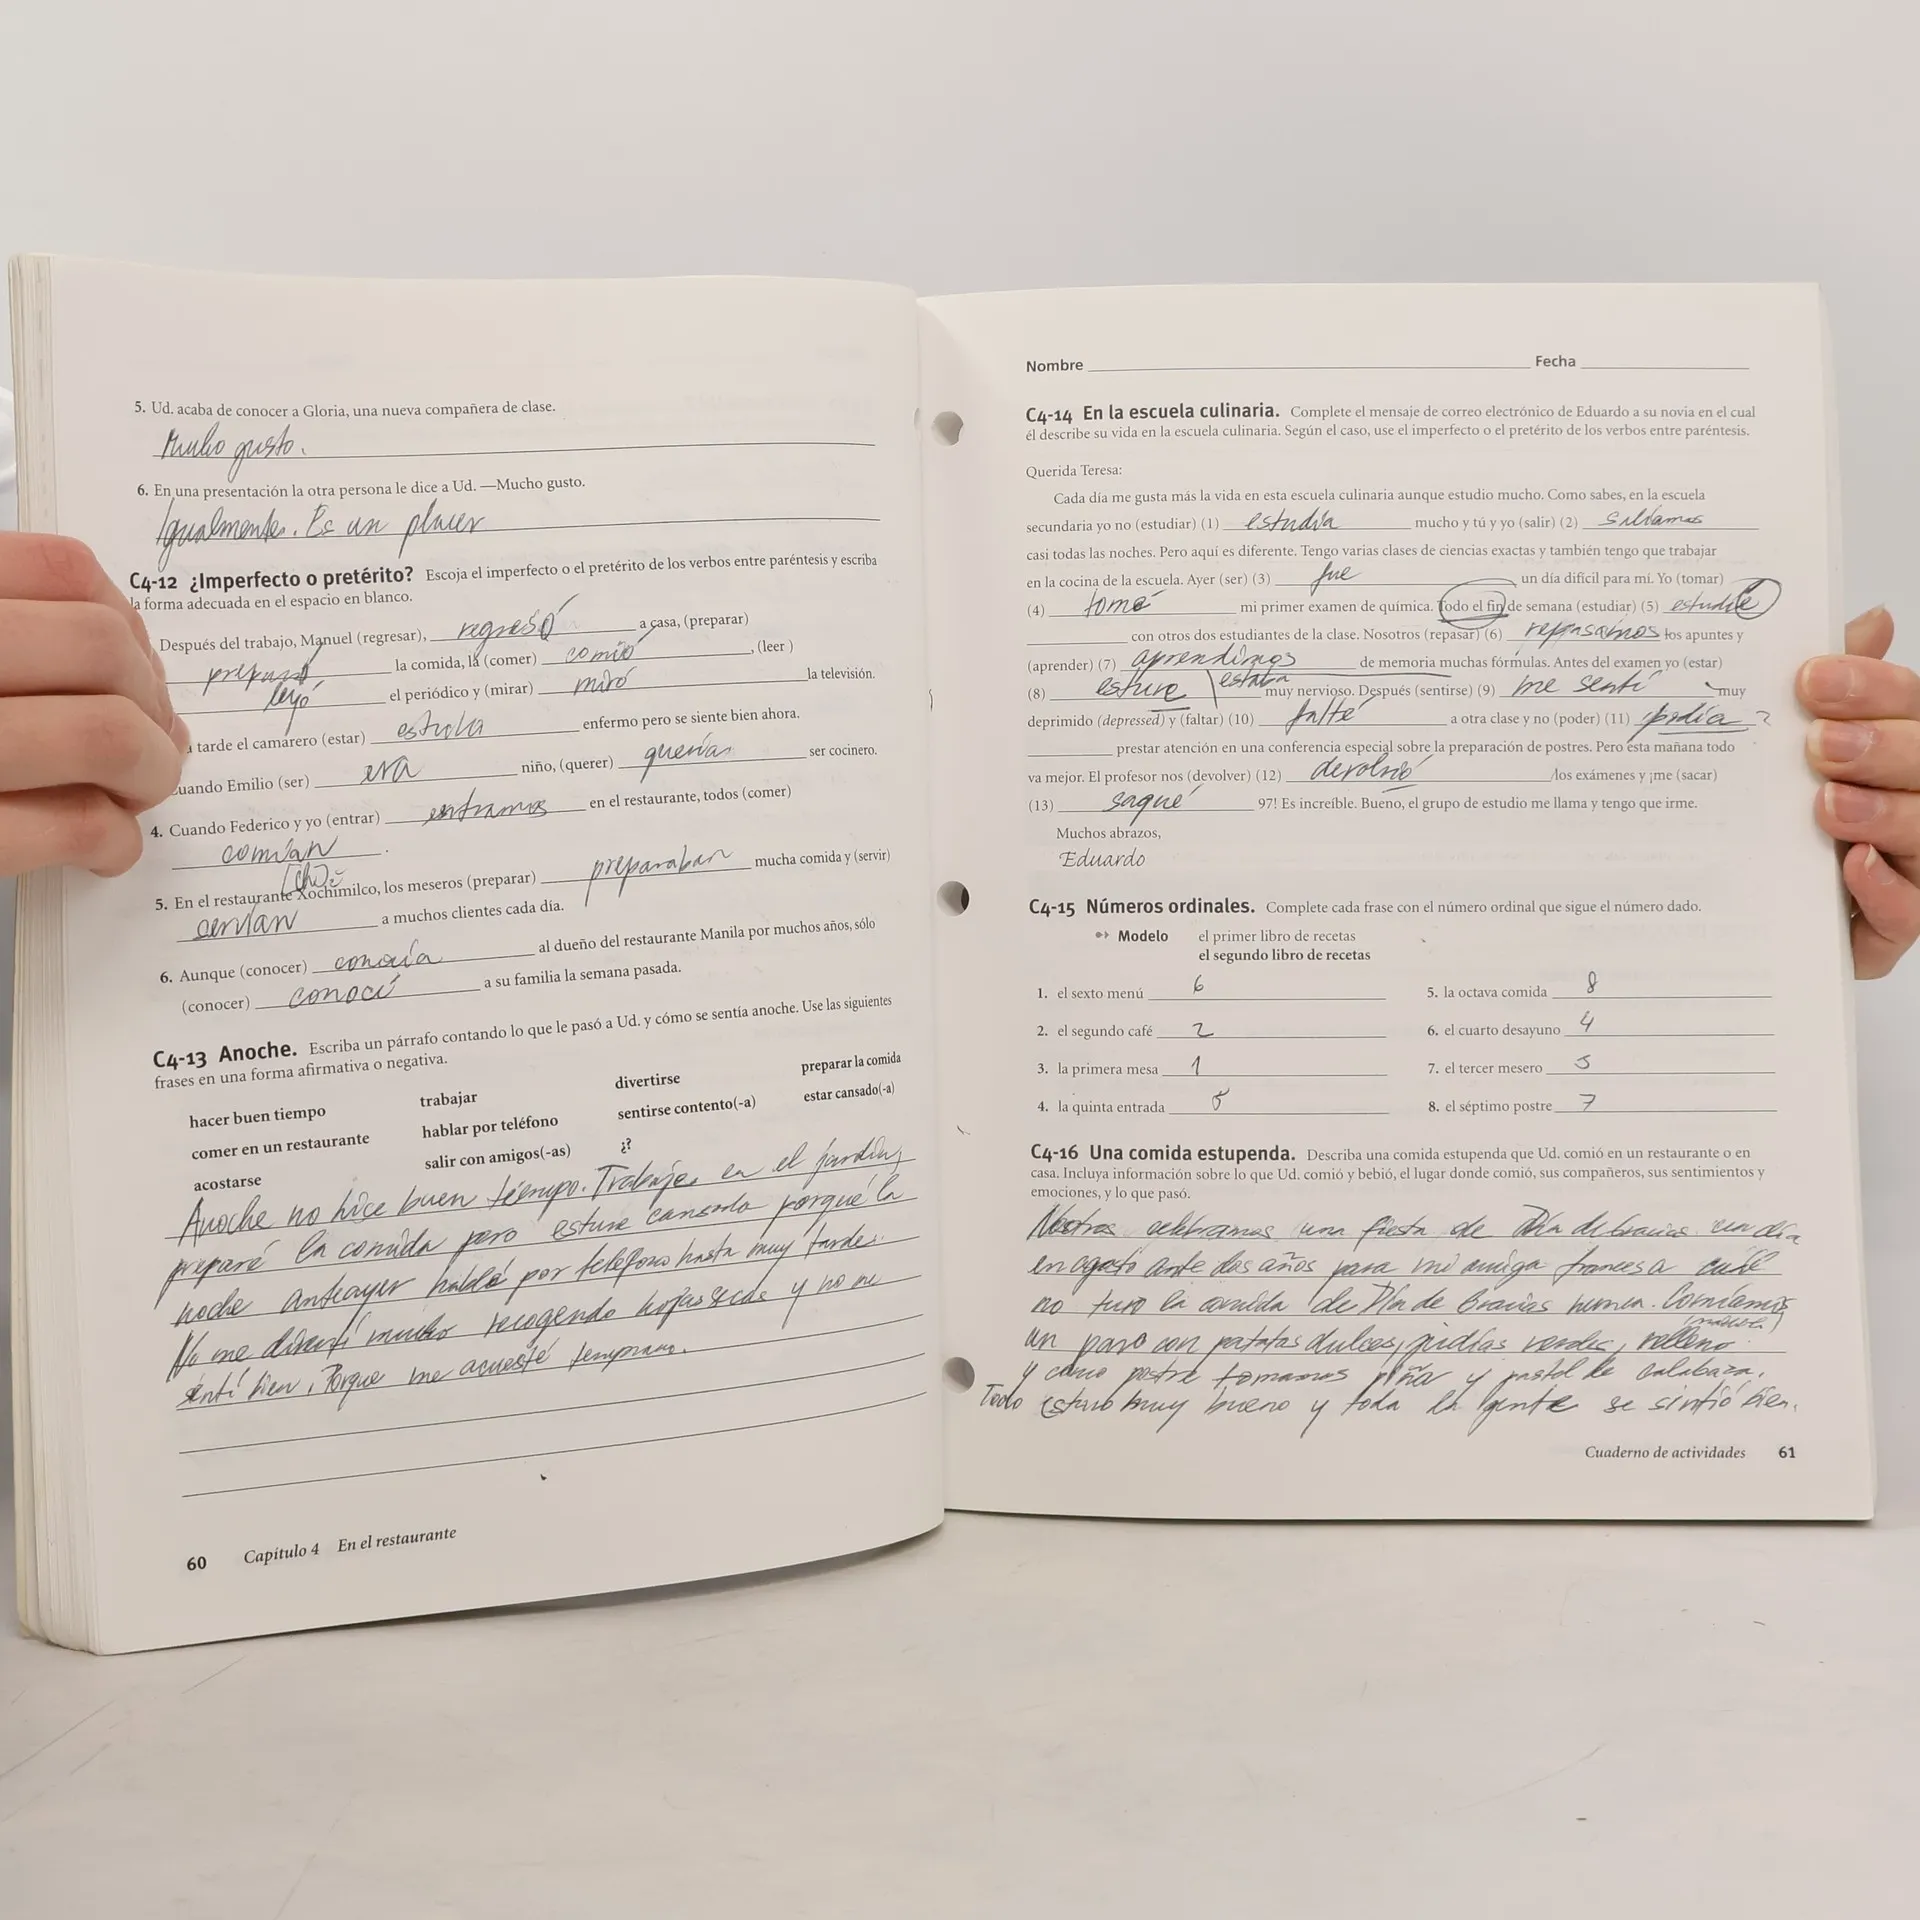 5. Ud. acaba de conocer a Gloria, una nueva compañera de clase.
Mucho gusto.
6. En una presentación la otra persona le dice a Ud. —Mucho gusto.
Igualmente. Es un placer
C4-12 ¿Imperfecto o pretérito? Escoja el imperfecto o el pretérito de los verbos entre paréntesis y escriba
la forma adecuada en el espacio en blanco.
Después del trabajo, Manuel (regresar), regresó a casa, (preparar)
preparó la comida, la (comer) comió, (leer)
leyó el periódico y (mirar) miró la televisión.
tarde el camarero (estar) estaba enfermo pero se siente bien ahora.
Cuando Emilio (ser) era niño, (querer) querías ser cocinero.
4. Cuando Federico y yo (entrar) entramos en el restaurante, todos (comer)
comían.
(ch)
5. En el restaurante Xochimilco, los meseros (preparar) preparaban mucha comida y (servir)
servían a muchos clientes cada día.
6. Aunque (conocer) conocía al dueño del restaurante Manila por muchos años, sólo
(conocer) conocí a su familia la semana pasada.
C4-13 Anoche. Escriba un párrafo contando lo que le pasó a Ud. y cómo se sentía anoche. Use las siguientes
frases en una forma afirmativa o negativa.
hacer buen tiempo trabajar divertirse preparar la comida
comer en un restaurante hablar por teléfono sentirse contento(-a) estar cansado(-a)
acostarse salir con amigos(-as) ¿?
Anoche no hice buen tiempo. Trabajé en el jardín,
preparé la comida pero estuve cansada porqué la
noche anteayer hablé por teléfono hasta muy tarde.
No me divertí mucho recogendo hojas secas y no me
sentí bien. Porque me acuesté temprano.
60 Capítulo 4 En el restaurante
Nombre Fecha
C4-14 En la escuela culinaria. Complete el mensaje de correo electrónico de Eduardo a su novia en el cual
él describe su vida en la escuela culinaria. Según el caso, use el imperfecto o el pretérito de los verbos entre paréntesis.
Querida Teresa:
Cada día me gusta más la vida en esta escuela culinaria aunque estudio mucho. Como sabes, en la escuela
secundaria yo no (estudiar) (1) estudía mucho y tú y yo (salir) (2) salíamos
casi todas las noches. Pero aquí es diferente. Tengo varias clases de ciencias exactas y también tengo que trabajar
en la cocina de la escuela. Ayer (ser) (3) fue un día difícil para mí. Yo (tomar)
(4) tomé mi primer examen de química. Todo el fin de semana (estudiar) (5) estudié
con otros dos estudiantes de la clase. Nosotros (repasar) (6) repasamos los apuntes y
(aprender) (7) aprendimos de memoria muchas fórmulas. Antes del examen yo (estar)
(8) estuve estaba muy nervioso. Después (sentirse) (9) me sentí muy
deprimido (depressed) y (faltar) (10) falté a otra clase y no (poder) (11) podía ?
prestar atención en una conferencia especial sobre la preparación de postres. Pero esta mañana todo
va mejor. El profesor nos (devolver) (12) devolvió los exámenes y ¡me (sacar)
(13) saqué 97! Es increíble. Bueno, el grupo de estudio me llama y tengo que irme.
Muchos abrazos,
Eduardo
C4-15 Números ordinales. Complete cada frase con el número ordinal que sigue el número dado.
Modelo el primer libro de recetas
el segundo libro de recetas
1. el sexto menú 6 5. la octava comida 8
2. el segundo café 2 6. el cuarto desayuno 4
3. la primera mesa 1 7. el tercer mesero 3
4. la quinta entrada 5 8. el séptimo postre 7
C4-16 Una comida estupenda. Describa una comida estupenda que Ud. comió en un restaurante o en
casa. Incluya información sobre lo que Ud. comió y bebió, el lugar donde comió, sus compañeros, sus sentimientos y
emociones, y lo que pasó.
Nostros celebramos una fiesta de Día de Gracias un día
en agosto ante dos años para mi amiga francesa
no tuvo la comida de Día de Gracias nunca. Comíamos
un pavo con patatas dulces, judías verdes, relleno
y como postre tomamos piña y pastel de calabaza.
Todo estuvo muy bueno y toda la gente se sintió bien.
Cuaderno de actividades 61